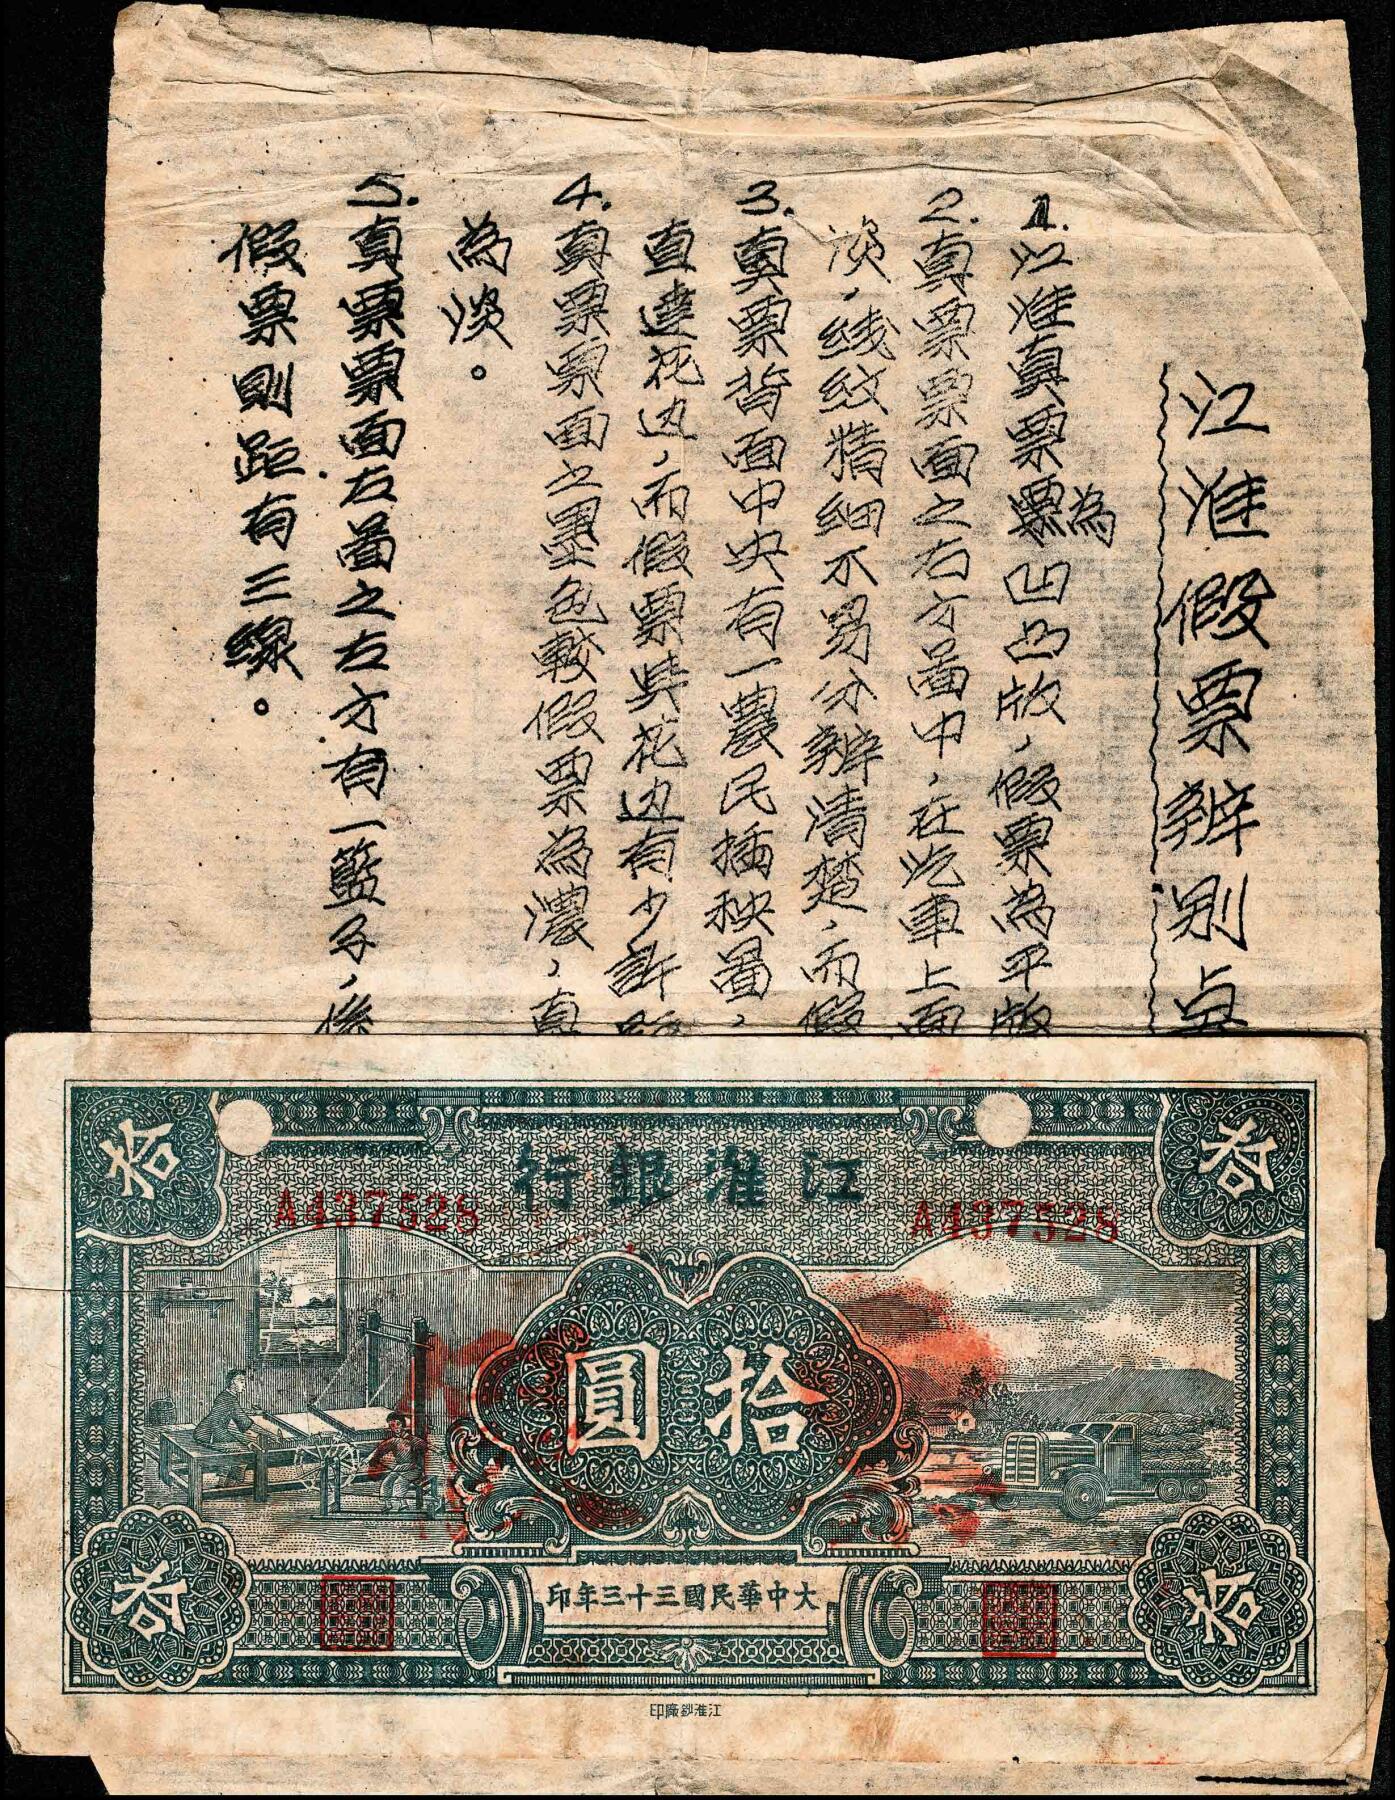 江淮假票辨别点
1.江淮真票票為凹凸版，假票為平版
2.真票票面之右方圖中，在汽車上面
淡，线紋精细不易分辨清楚，而假
3.真票背面中央有一農民插秧圖，
直達花边，而假票与花边有少許
4.真票票面之墨色較假票為濃，真
為淡。
5.真票票面左圖之左方有一籃子，
假票則距有三線。
拾
拾
江淮銀行
A437528
A437528
拾圓
大中華民國三十三年印
拾
拾
江淮鈔廠印